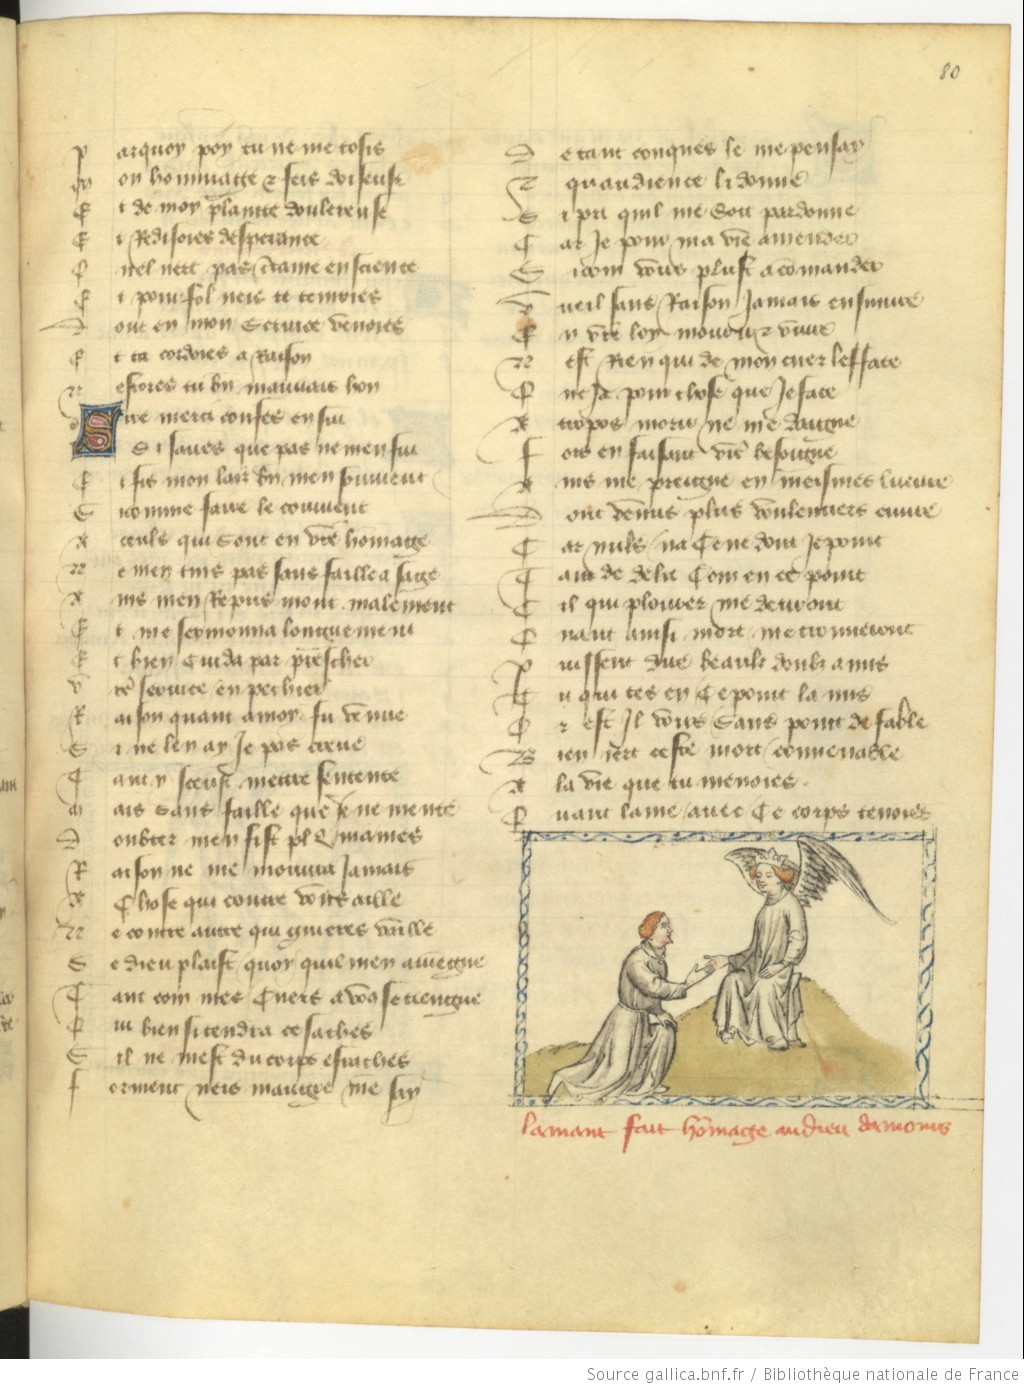 80
P arquoy poy tu ne me tosis
M on hommage & feis oiseuse
E t de moy plainte doulereuse
E t Redisoies desperance
C nel nert pas come en science
E t pour fol neis te tenoies
D ont en mon Service venoies
E t ta cordoies a Raison
N estoies tu bn mauvais hon
S ire merci confes en sui
S i saves que pas ne men fui
E t fis mon lais bn men souvient
S i comme faire le convient
A ceuls qui Sont en vre hommage
N e men tins pas sans faille a sage
A ins men Repris mont malement
E t me sermonna longuement
E t bien Cuida par preescher
V re service en pechier
R aison quant a moy fu venue
S i ne len ay Je pas creue
T ant y sceust mettre sentence
M ais Sans faille que Je ne mente
D oubter men fist plus mames
R aison ne me mouvra Jamais
A Chose qui contre vous aille
N e contre autre qui guieres vaille
S e dieu plaist quoy quil men aviengne
T ant com mes Cuers a vous se tiengne
Q ui bien si tendra ce saches
S il ne mest du corps esraches
F orment neis maugre me say
D e tant conques le me pensay
N quaudience li donne
S i pri quil me Soit pardonne
C ar Je pour ma vie amender
S i com vous plust a comander
V ueil sans Raison Jamais ensuivre
E n vre loy mourir & vivre
N est Rien qui de mon cuer lefface
C ne Ja pour chose que Je face
A tropos morir ne me daigne
F ors en faisant vre besongne
A ins me preigne en meismes leuvre
D ont venus plus voulentiers euvre
C ar nuls na Ce ne dout Je point
T ant de delit Com en ce point
C il qui plourer me devront
Q uant ainsi mort me trouveront
P uissent dire beaulz doulz amis
T u qui tes en Ce point la mis
O r est Il voirs Sans point de fable
B ien iert ceste mort convenable
A la vie que tu menoies
Q uant lame avec Ce corps tenoies
lamant fait homage au dieu damours
Source gallica.bnf.fr / Bibliothèque nationale de France